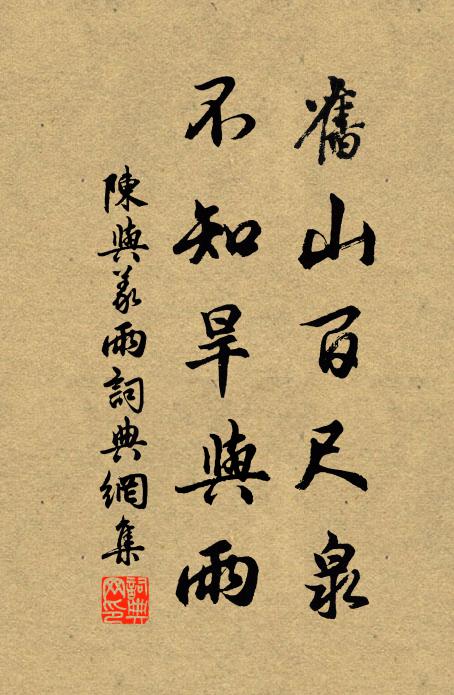 舊山百尺泉
不知旱與雨
陳與義雨詞典網集
詞典网印